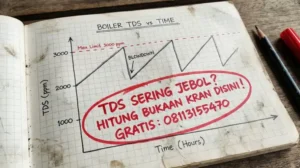 BOILER TDS vs TIME
3000
Max Limit 3000 ppm
BLOWDOWN
2000
1000
TDS (ppm)
TDS SERING JEBOL?
HITUNG BUKAAN KRAN DISINI!
GRATIS: 08113155470
Time (Hours)